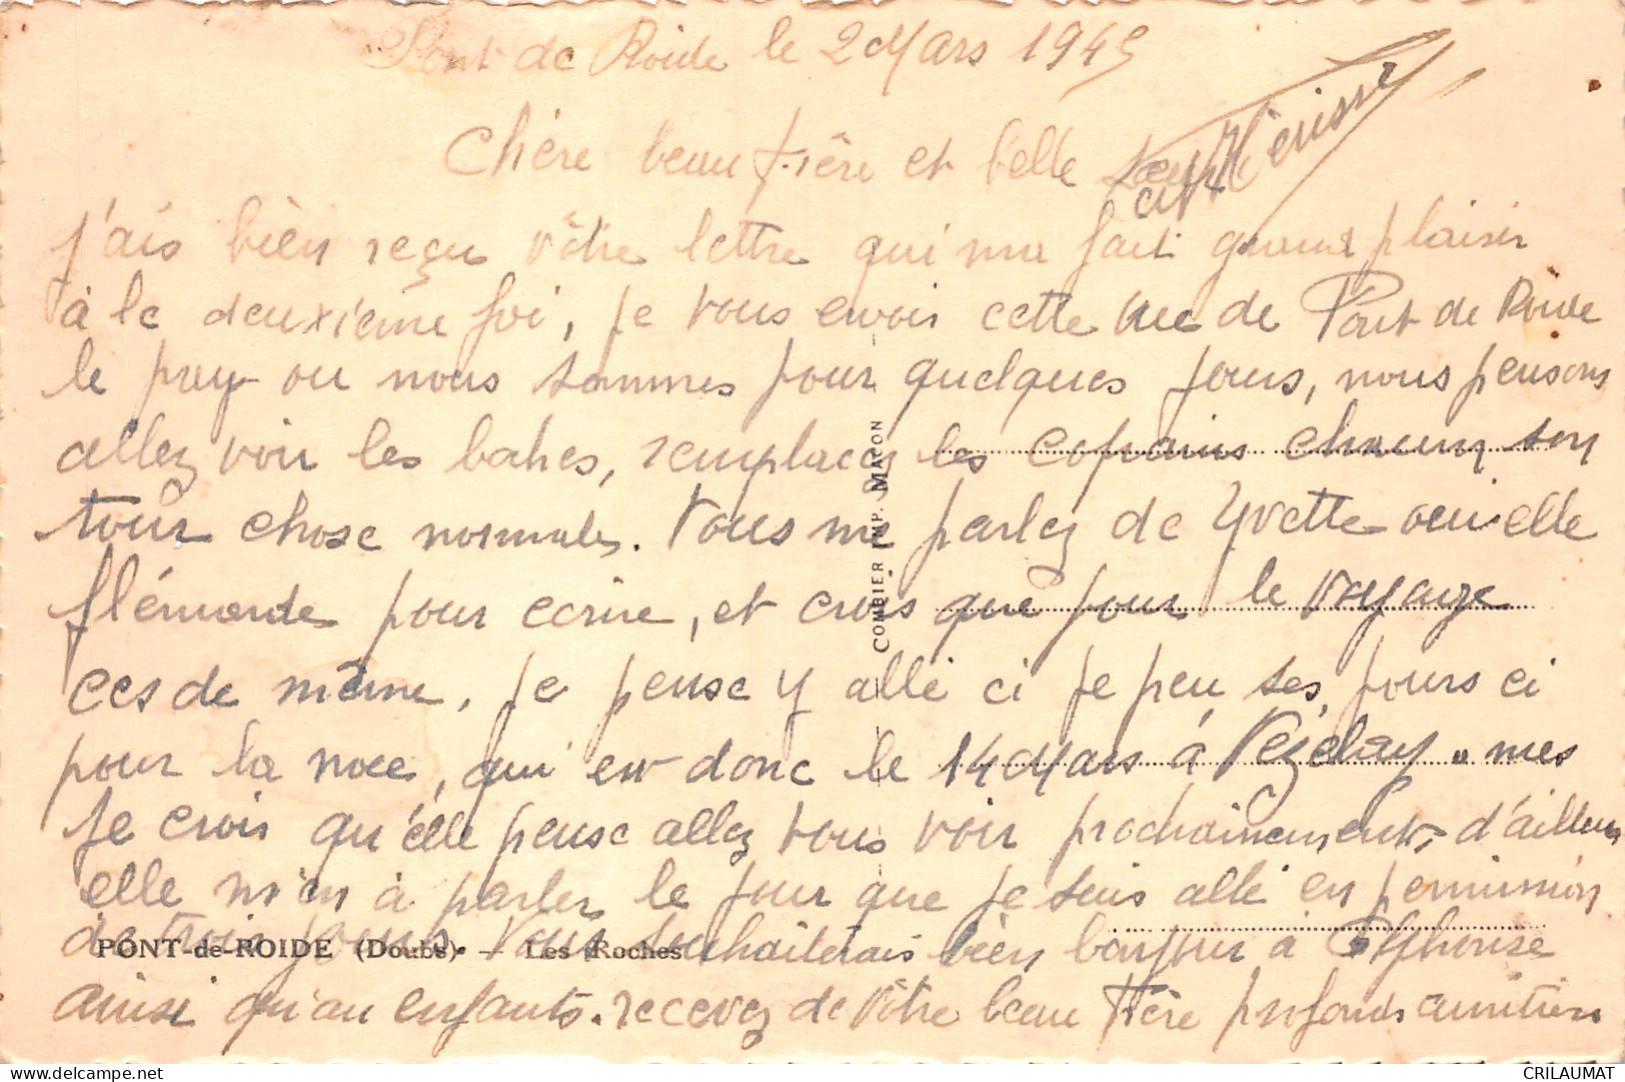 Pont de Roide le 2 Mars 1945
Chère beau frère et belle sœur
j'ais bièn reçu vôtre lettre qui ma fait grand plaisir
à le deuxieme foi, je vous envois cette vue de Pont de Roide
le pay ou nous sommes pour quelques jours, nous pensons
allez voir les baches, remplacez les copains chacun son
tour chose normales. Vous me parlez de Yvette oui elle
flémarde pour ecrire, et crois que pour le voyage
ces de même, je pense y allé ci je peu ses jours ci
pour la noce, qui est donc le 14 Mars à Vezelay " mes
Je crois qu'èlle pense allez vous voir prochainement, d'ailleurs
elle m'en à parler le jour que je suis allé en permission
de trois jours. Vous souhaiterais bièn bonjour à Alphonse
PONT-de-ROIDE (Doubs). — Les Roches
ainsi qu'au enfants. recevez de vôtre beau frère profonds amitiers
COMBIER IMP. MACON
CRILAUMAT